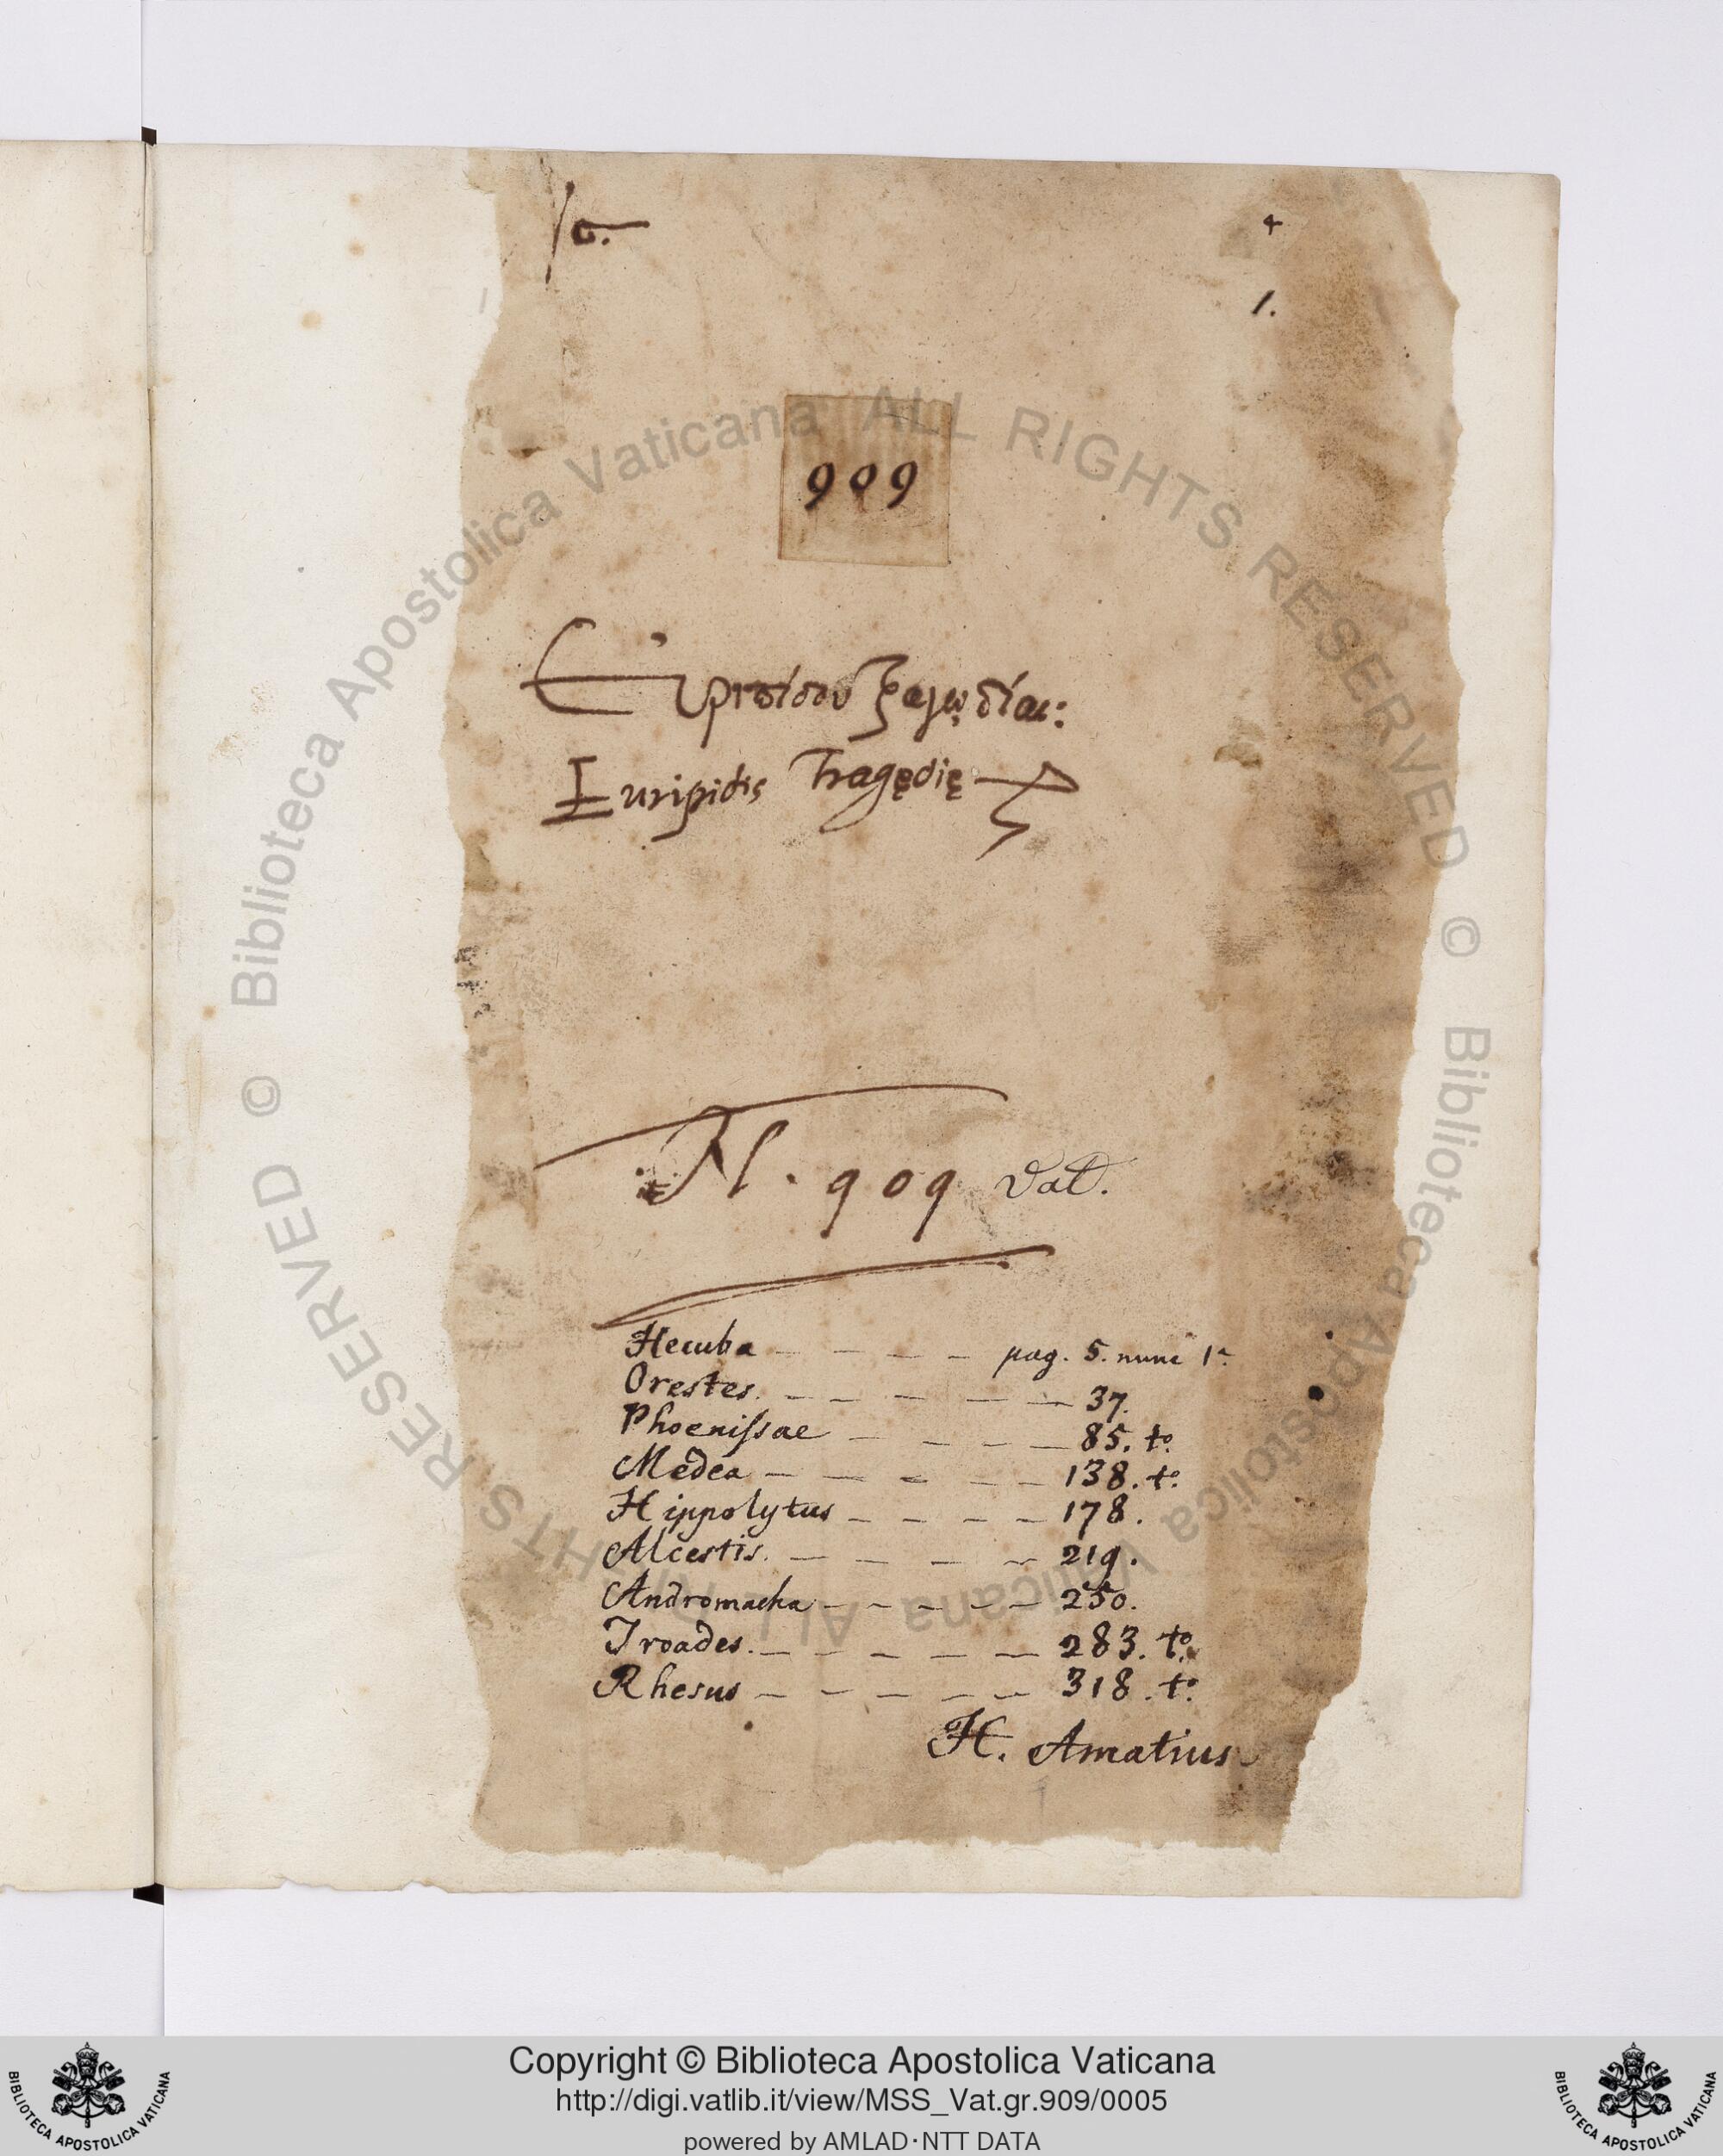 4
1.
909
Εὐριπίδου τραγῳδίαι:
Euripidis Tragędię
N. 909 Vat.
Hecuba — — — — — pag. 5. nunc 1ª
Orestes. — — — — — 37.
Phoeniſsae — — — — — 85. tº
Medea — — — — — 138. tº
Hippolytus — — — — — 178.
Alcestis. — — — — 219.
Andromacha — — — — — 250.
Troades. — — — — — 283. tº
Rhesus — — — — — 318. tº
H. Amatius
© Biblioteca Apostolica Vaticana ALL RIGHTS RESERVED
© Biblioteca Apostolica Vaticana ALL RIGHTS RESERVED
Copyright © Biblioteca Apostolica Vaticana
http://digi.vatlib.it/view/MSS_Vat.gr.909/0005
powered by AMLAD·NTT DATA
BIBLIOTECA APOSTOLICA VATICANA
BIBLIOTECA APOSTOLICA VATICANA